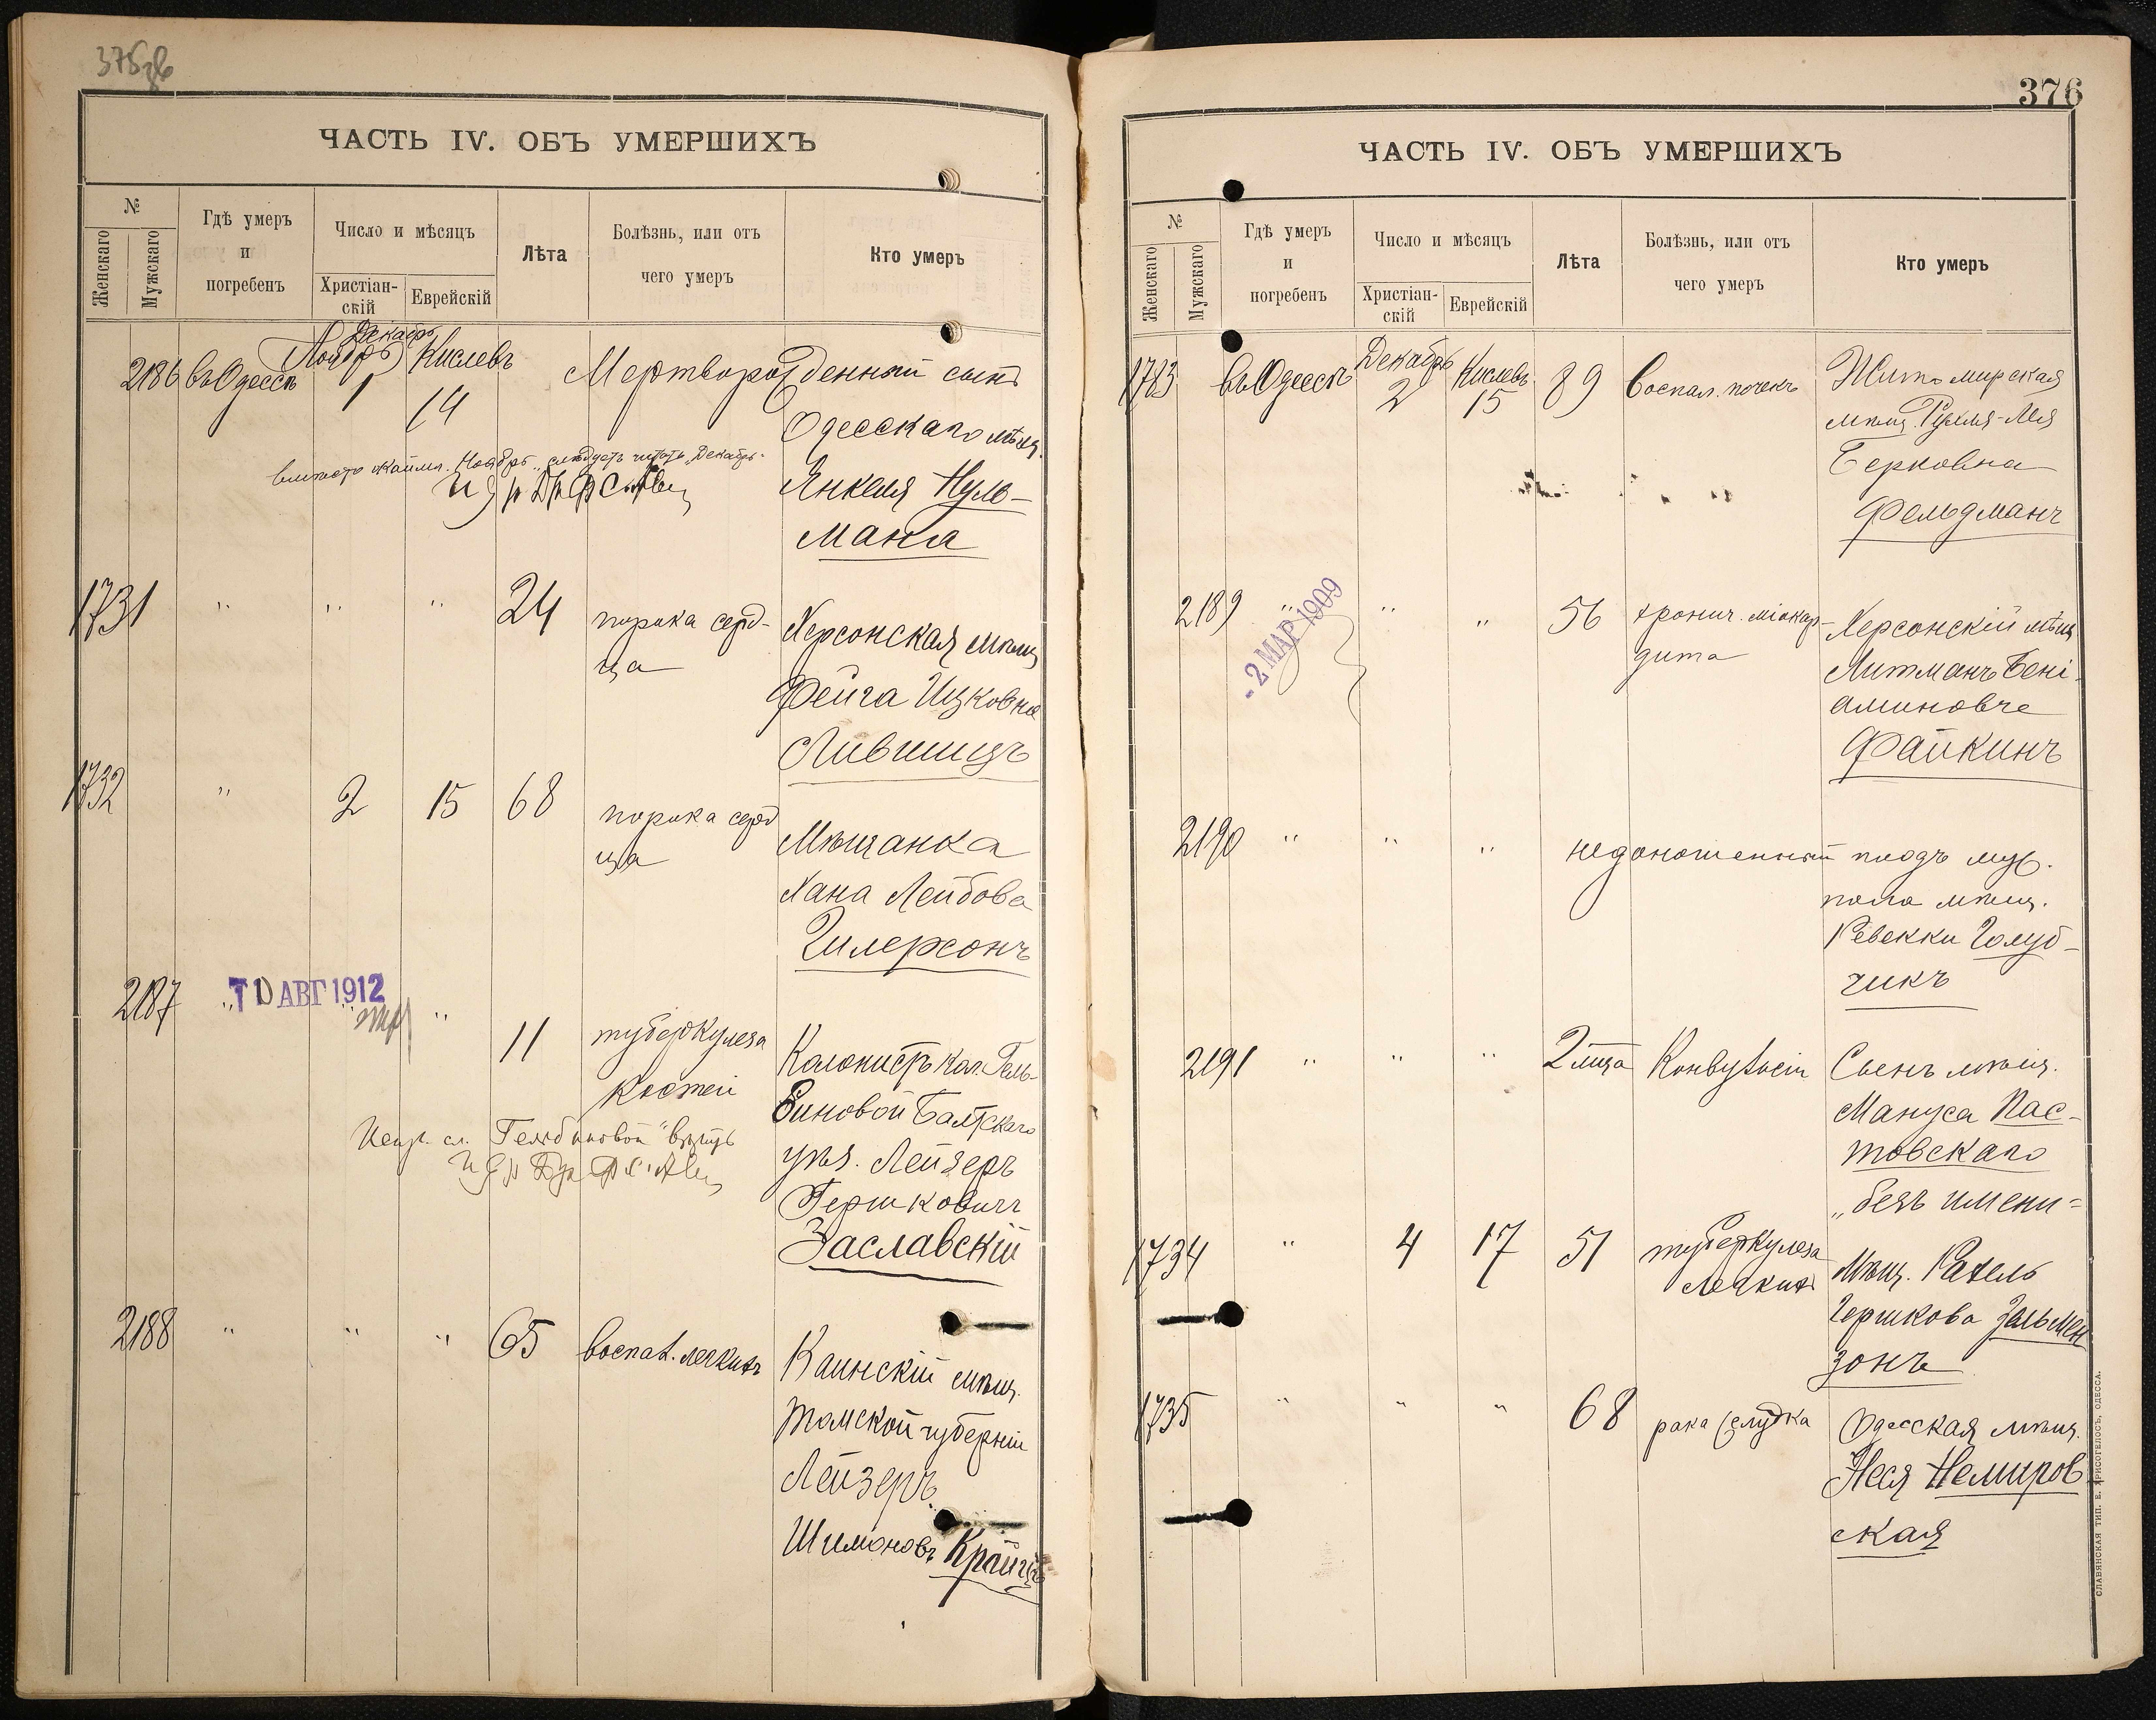 ЧАСТЬ IV. ОБЪ УМЕРШИХЪ
№
Женскаго
Мужскаго
Гдѣ умеръ
и
погребенъ
Число и мѣсяцъ
Христіан-
скій
Еврейскій
Лѣта
Болѣзнь, или отъ
чего умеръ
Кто умеръ
2186 въ Одессѣ Ноябрь Декабрь 1 Кислевъ 14 Мертворожденный сынъ
Одесскаго мѣщ.
Янкеля Нуль-
мана
вмѣсто Ноябрь слѣдуетъ читать „Декабрь"
1731 " " " 24 порока серд-
ца
Херсонская мѣщ
Фейга Ицковна
Лившицъ
1732 " 2 15 68 порока серд
ца
Мѣщанка
Хана Лейбова
Гилерсонъ
2187 " " " 11 туберкулеза
костей
АВГ 1912
Колонистъ кол. Гель-
биновой Балтскаго
уѣз. Лейзеръ
Гершковичъ
Заславскій
2188 " " " 65 воспал. легкихъ
Каинскій мѣщ.
Томской губерніи
Лейзеръ
Шимоновъ
ЧАСТЬ IV. ОБЪ УМЕРШИХЪ
376
№
Женскаго
Мужскаго
Гдѣ умеръ
и
погребенъ
Число и мѣсяцъ
Христіан-
скій
Еврейскій
Лѣта
Болѣзнь, или отъ
чего умеръ
Кто умеръ
1733 въ Одессѣ Декабрь 2 Кислевъ 15 89 Воспал. почекъ
Житомирская
мѣщ. Рухля-Лея
Берковна
Фельдманъ
2189 " " " 56 хронич. міокар-
дита
- 2 МАР 1909
Херсонскій мѣщ
Литманъ Бені-
аминовъ
Файкинъ
2190 " " " недоношенный плодъ муж.
пола мѣщ.
Ревекки Голуб-
чикъ
2191 " " " 2 мѣс. Конвульсіи
Сынъ мѣщ.
Мануса Пас-
товскаго
„безъ имени"
1734 " 4 17 51 туберкулеза
легкихъ
Мѣщ. Рахель
Гершкова Зальмен
зонъ
1735 " " " 68 рака желудка
Одесская мѣщ.
Неся Немиров
ская
СЛАВЯНСКАЯ ТИП. Е. ХРИСОГЕЛОСЪ, ОДЕССА.